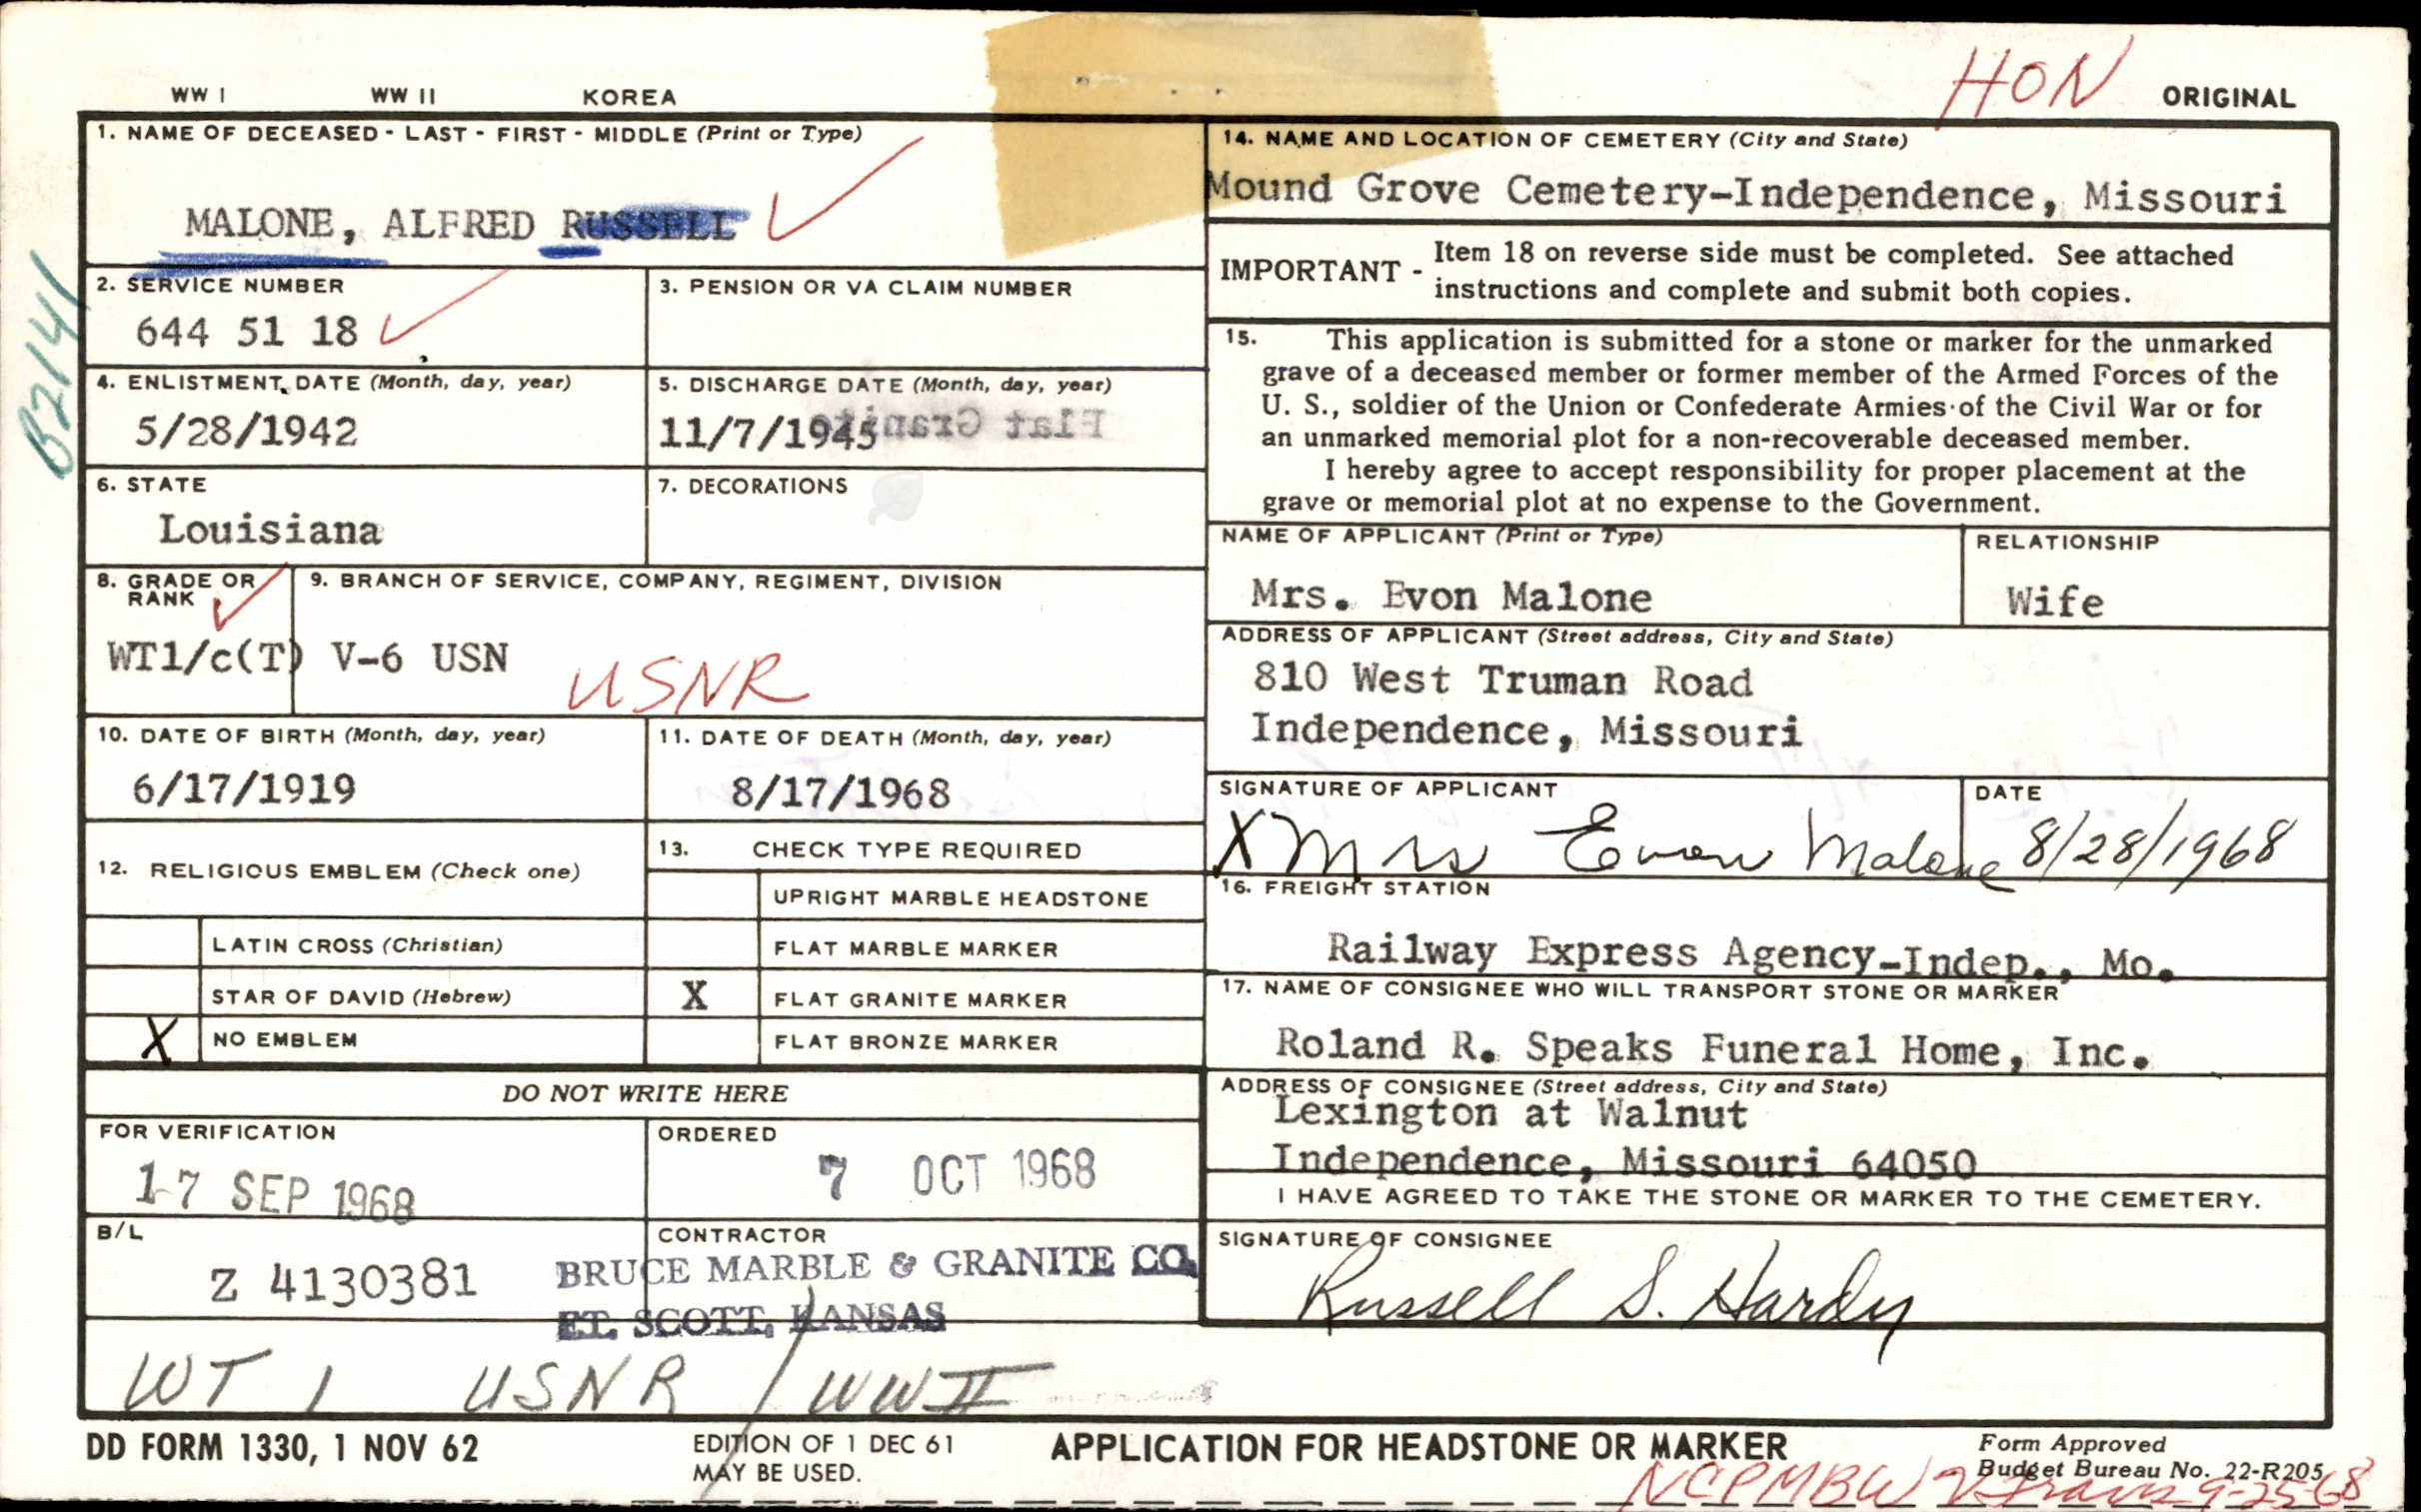 WW I WW II KOREA
HON ORIGINAL
1. NAME OF DECEASED - LAST - FIRST - MIDDLE (Print or Type)
MALONE, ALFRED RUSSELL
2. SERVICE NUMBER
644 51 18
3. PENSION OR VA CLAIM NUMBER
B2141
4. ENLISTMENT DATE (Month, day, year)
5/28/1942
5. DISCHARGE DATE (Month, day, year)
11/7/1945
Flat Granite
6. STATE
Louisiana
7. DECORATIONS
8. GRADE OR
RANK
WT1/c(T)
9. BRANCH OF SERVICE, COMPANY, REGIMENT, DIVISION
V-6 USN
USNR
10. DATE OF BIRTH (Month, day, year)
6/17/1919
11. DATE OF DEATH (Month, day, year)
8/17/1968
12. RELIGIOUS EMBLEM (Check one)
LATIN CROSS (Christian)
STAR OF DAVID (Hebrew)
X NO EMBLEM
13. CHECK TYPE REQUIRED
UPRIGHT MARBLE HEADSTONE
FLAT MARBLE MARKER
X FLAT GRANITE MARKER
FLAT BRONZE MARKER
DO NOT WRITE HERE
FOR VERIFICATION
17 SEP 1968
ORDERED
7 OCT 1968
B/L
Z 4130381
CONTRACTOR
BRUCE MARBLE & GRANITE CO.
FT. SCOTT, KANSAS
WT 1 USNR / WW II
14. NAME AND LOCATION OF CEMETERY (City and State)
Mound Grove Cemetery-Independence, Missouri
IMPORTANT - Item 18 on reverse side must be completed. See attached
instructions and complete and submit both copies.
15. This application is submitted for a stone or marker for the unmarked
grave of a deceased member or former member of the Armed Forces of the
U. S., soldier of the Union or Confederate Armies of the Civil War or for
an unmarked memorial plot for a non-recoverable deceased member.
I hereby agree to accept responsibility for proper placement at the
grave or memorial plot at no expense to the Government.
NAME OF APPLICANT (Print or Type)
Mrs. Evon Malone
RELATIONSHIP
Wife
ADDRESS OF APPLICANT (Street address, City and State)
810 West Truman Road
Independence, Missouri
SIGNATURE OF APPLICANT
X Mrs Evon Malone
DATE
8/28/1968
16. FREIGHT STATION
Railway Express Agency-Indep., Mo.
17. NAME OF CONSIGNEE WHO WILL TRANSPORT STONE OR MARKER
Roland R. Speaks Funeral Home, Inc.
ADDRESS OF CONSIGNEE (Street address, City and State)
Lexington at Walnut
Independence, Missouri 64050
I HAVE AGREED TO TAKE THE STONE OR MARKER TO THE CEMETERY.
SIGNATURE OF CONSIGNEE
Russell S. Hardy
DD FORM 1330, 1 NOV 62
EDITION OF 1 DEC 61
MAY BE USED.
APPLICATION FOR HEADSTONE OR MARKER
Form Approved
Budget Bureau No. 22-R205
NCPMBW 9-25-68